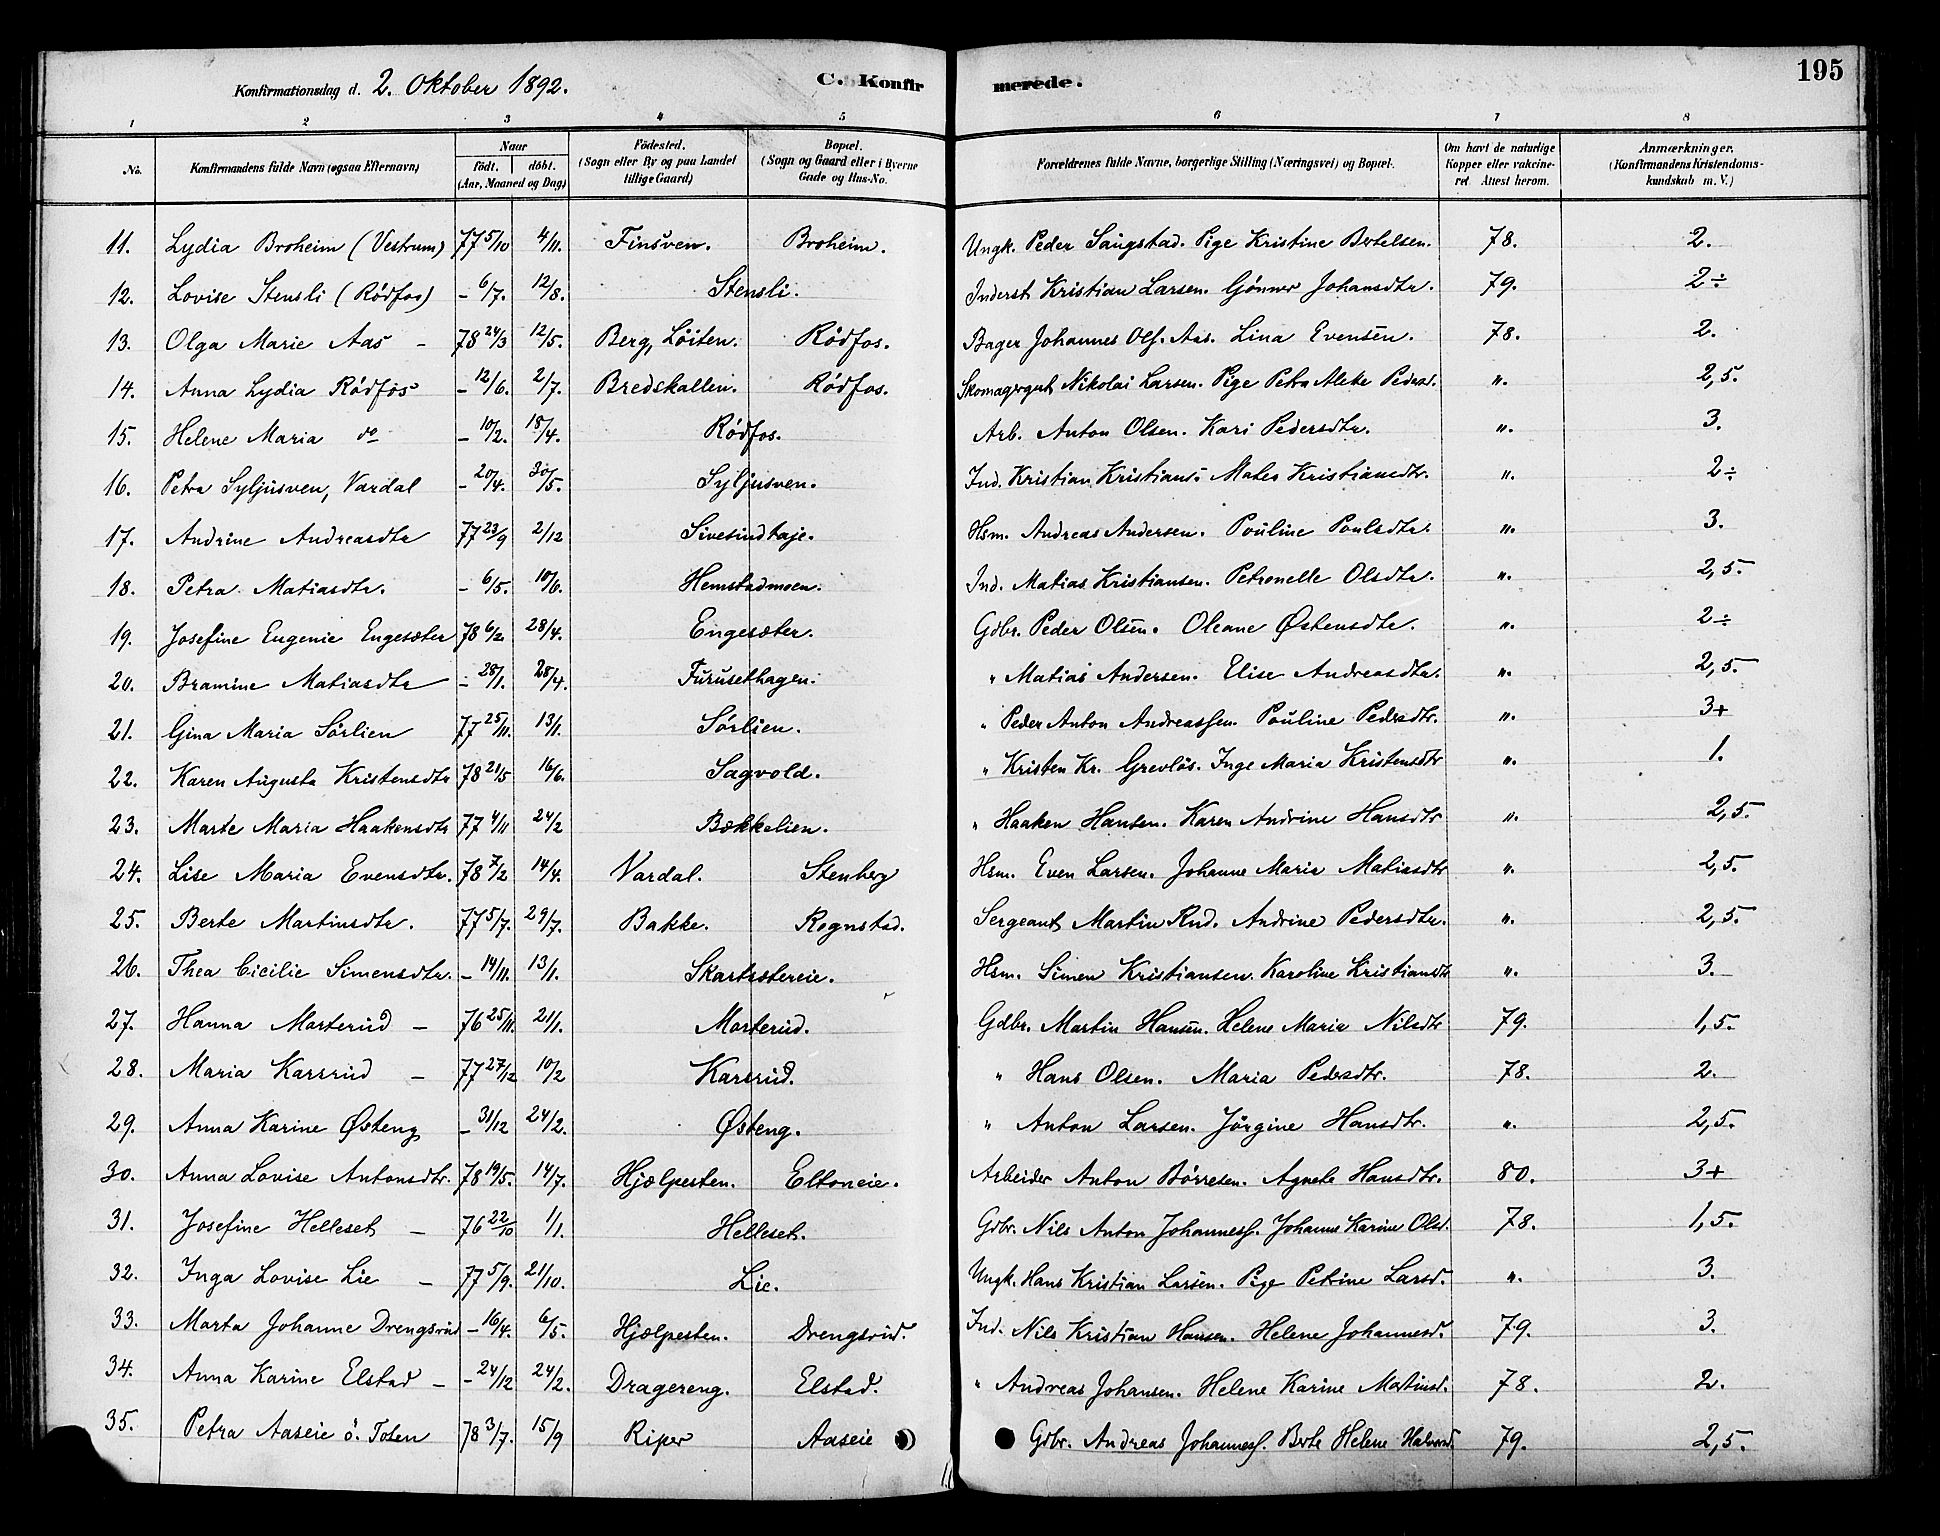 Konfirmationsdag d. 2. Oktober 1892. C. Konfir merede. 195
1 2 3 4 5 6 7 8
No. Konfirmandens fulde Navn (ogsaa Efternavn) Naar födt. döbt. (Aar, Maaned og Dag) Födested. (Sogn eller By og paa Landet tillige Gaard) Bopæl. (Sogn og Gaard eller i Byerne Gade og Hus-No. Forældrenes fulde Navne, borgerlige Stilling (Næringsvei) og Bopæl. Om havt de naturlige Kopper eller vakcineret. Attest herom. Anmærkninger. (Konfirmandens Kristendomskundskab m. V.)
11. Lydia Broheim (Vestrum) 77 5/10 4/11. Finsven. Broheim. Ungk. Peder Saugstad. Pige Kristine Bertelsen. 78. 2.
12. Lovise Stensli (Rödfos) – 6/7. 12/8. Stensli. Inderst Kristian Larsen. Gönner Johansdtr. 79. 2÷
13. Olga Marie Aas – 78 24/3 12/5. Berg, Löiten. Rödfos. Bager Johannes Ols. Aas. Lina Evensen. 78. 2.
14. Anna Lydia Rödfos – 12/6. 2/7. Bredskallen. Rödfos. Nikolai Larsen. Pige Petra Pedersd. ". 2,5.
15. Helene Maria do – 10/2. 18/4. Rödfos. Arb. Anton Olsen. Kari Pedersdtr. ". 3.
16. Petra Syljusven, Vardal – 20/4. 30/5. Syljusven. Ind. Kristian Kristians. Matea Kristiansdtr. ". 2÷
17. Andrine Andreasdtr 77 23/9 2/12 Sivesindhaje. Hsm. Andreas Andersen. Pouline Poulsdtr. ". 3.
18. Petra Matiasdtr. – 6/5. 10/6. Hemstadmoen. Ind. Matias Kristiansen. Petronelle Olsdtr. ". 2,5.
19. Josefine Eugenie Engesæter 78 6/2 28/4. Engesæter. Gdbr. Peder Olsen. Oleane Østensdtr. ". 2÷
20. Bramine Matiasdtr – 28/1. 28/4. Furusethagen. " Matias Andersen. Elise Andreasdtr. ". 2,5.
21. Gina Maria Sörlien 77 25/11. 13/1. Sörlien. " Peder Anton Andreassen. Pouline Pedersdtr. ". 3+
22. Karen Augusta Kristensdtr 78 21/5 16/6. Sagvold. " Kristen Kr. Grevlös. Inge Maria Kristensdtr ". 1.
23. Marte Maria Haakensdtr 77 4/11 24/2 Bækkelien. " Haaken Hansen. Karen Andrine Hansdtr ". 2,5.
24. Lise Maria Evensdtr. 78 7/2 14/4. Vardal. Stenberg Hsm. Even Larsen. Johanne Maria Matiasdtr ". 2,5.
25. Berte Martinsdtr. 77 5/7. 29/7. Bakke. Rognstad. Sergeant Martin Knd. Andrine Pedersdtr. ". 2,5.
26. Thea Cicilie Simensdtr. – 14/11. 13/1. Skartsætereie. Hsm. Simen Kristiansen. Karoline Kristiansdtr ". 3.
27. Hanna Morterud – 76 25/11. 21/1. Morterud. Gdbr. Martin Hansen. Helene Maria Nilsdtr 79. 1,5.
28. Maria Karsrud – 77 27/12 10/2 Karsrud. " Hans Olsen. Maria Pedersdtr. 78. 2.
29. Anna Karine Østeng – 31/12 24/2. Østeng. " Anton Larsen. Jörgine Hansdtr. ". 2,5.
30. Anna Lovise Antonsdtr. 78 19/5. 14/7. Hjælpesten. Eltoneie. Arbeider Anton Börresen. Agnete Hansdtr. 80. 3+
31. Josefine Helleset – 76 22/10 1/1. Helleset. Gdbr. Nils Anton Johanness. Johanne Karine Olsd. 78. 1,5.
32. Inga Lovise Lie – 77 5/9. 21/10. Lie. Ungk. Hans Kristian Larsen. Pige Petrine Larsd. ". 3.
33. Marta Johanne Drengsrud – 16/4. 6/5. Hjælpesten. Drengsrud. Ind. Nils Kristian Hansen. Helene Johannesd. 79. 3.
34. Anna Karine Elstad – – 24/12 24/2. Dragereng. Elstad. " Andreas Johansen. Helene Karine Martinsd. 78. 2.
35. Petra Aaseie ö. Toten 78 3/7. 15/9 Riper Aaseie Gdbr. Andreas Johanness. Berte Helene Halvorsd. 79. 2,5.